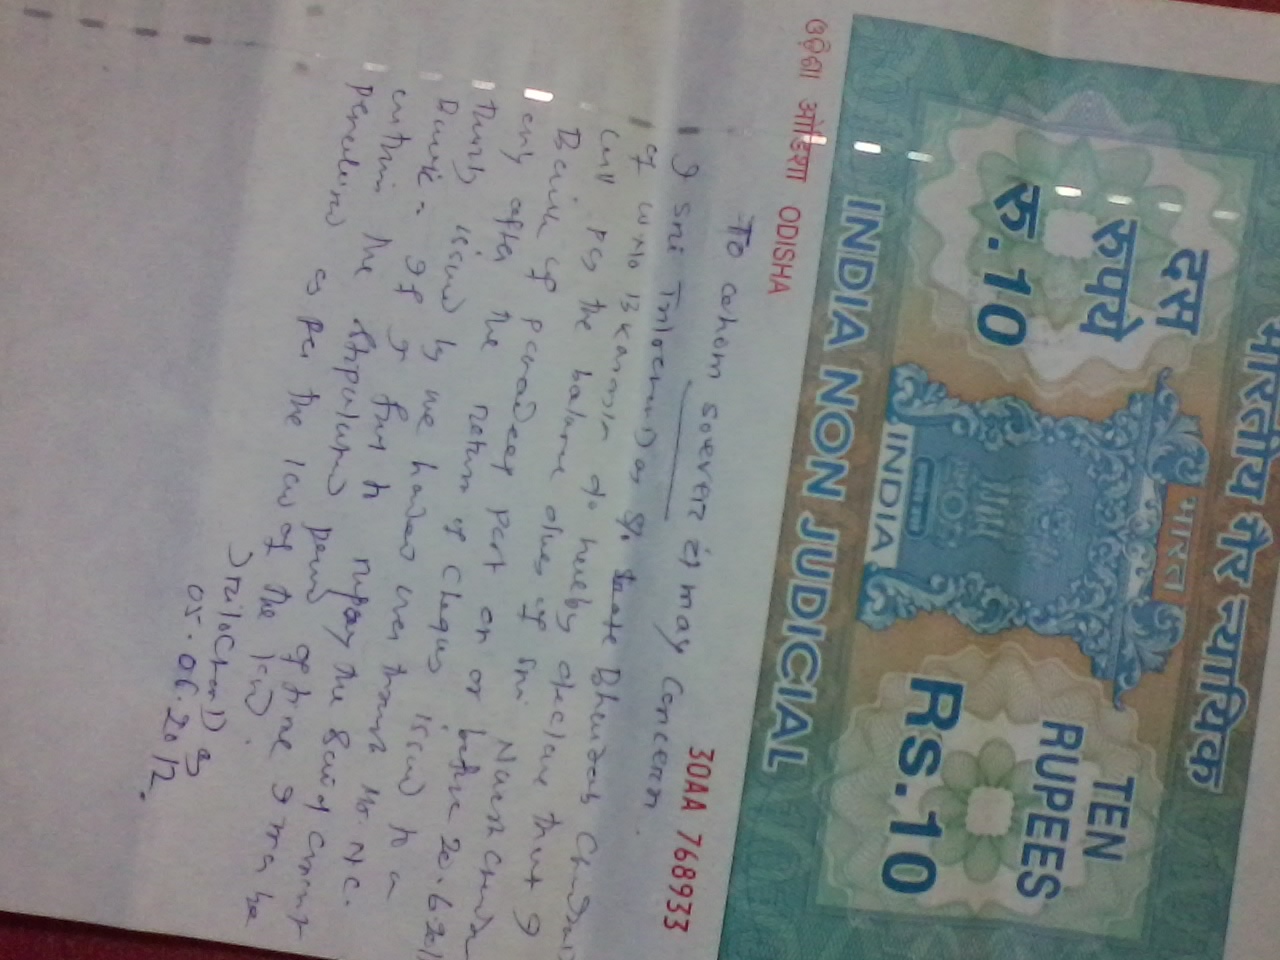 भारतीय गैर न्यायिक
भारत
दस
रुपये
रु.10
TEN
RUPEES
Rs.10
INDIA
INDIA NON JUDICIAL
ଓଡ଼ିଶା ओडिशा ODISHA
30AA 768933
To whom soever it may concern.
I Sri Trilochan Das S/o. Late
of W.No 13 do hereby declare that I
will pay the balance dues of Sri Naresh Chandra
of paradeep port on or before 20.6.201
only after the return of Cheques issued to
issued by me handed over through Mr. N.C.
If I fail to repay the Said amount
within the Stipulated period of time I may be
penalised as per the law of the land.
Trilochan Das
05.06.2012.